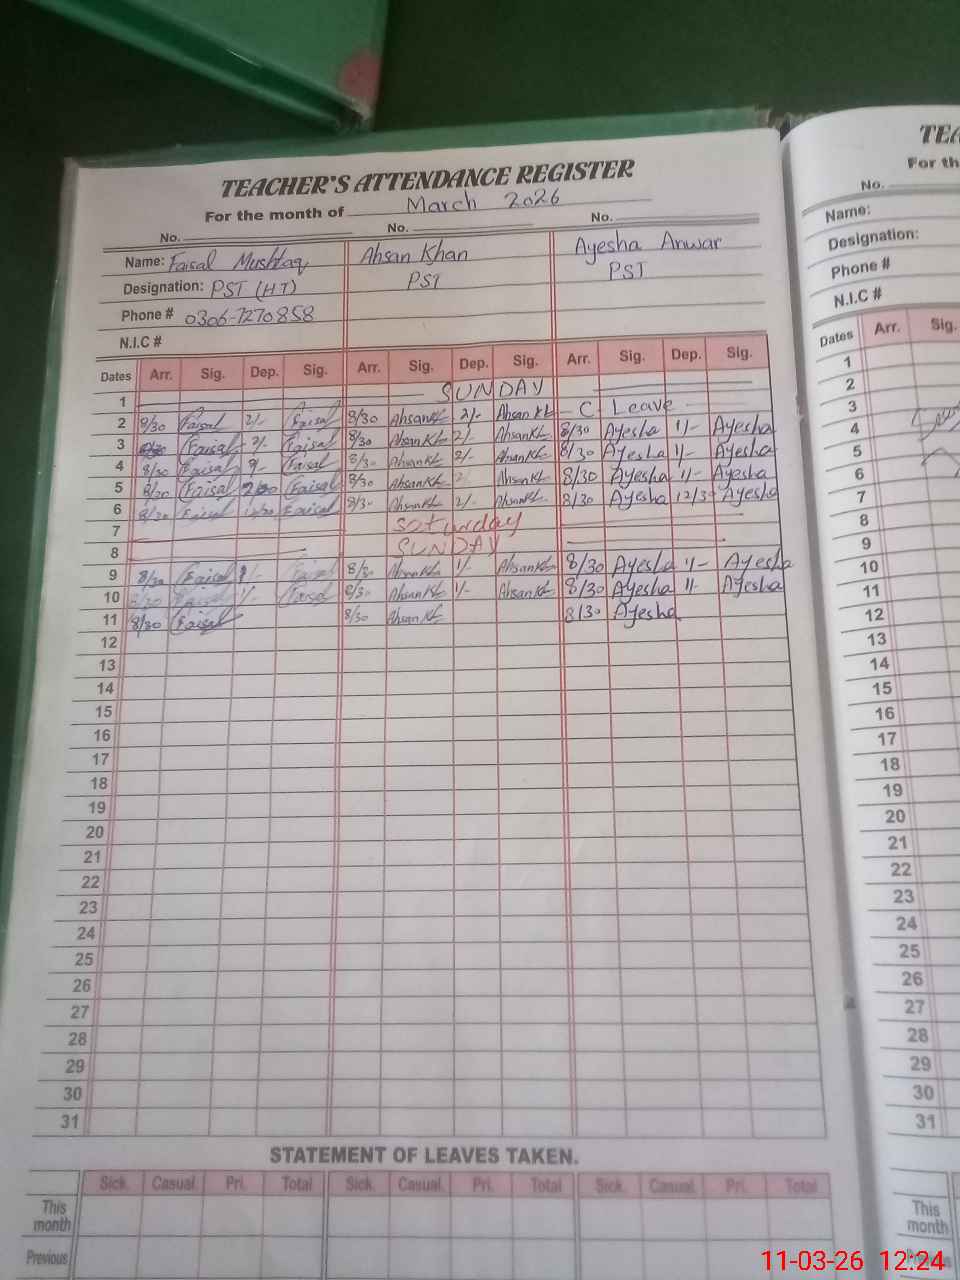 TEACHER'S ATTENDANCE REGISTER
For the month of March 2026
No. No. No.
Name: Faisal Mushtaq Ahsan Khan Ayesha Anwar
Designation: PST (HT) PST PST
Phone # 0306-7270858
N.I.C #
Dates Arr. Sig. Dep. Sig. Arr. Sig. Dep. Sig. Arr. Sig. Dep. Sig.
1 SUNDAY
2 8/30 Faisal 2/- Faisal 8/30 AhsanKh 2/- AhsanKh C Leave
3 Faisal 2/- Faisal 8/30 AhsanKh 2/- AhsanKh 8/30 Ayesha 1/- Ayesha
4 8/30 Faisal Faisal 8/30 AhsanKh 2/- AhsanKh 8/30 Ayesha 1/- Ayesha
5 8/30 Faisal Faisal 8/30 AhsanKh AhsanKh 8/30 Ayesha 1/- Ayesha
6 8/30 Faisal 12/30 Faisal 8/30 AhsanKh 2/- AhsanKh 8/30 Ayesha 12/30 Ayesha
7 Saturday
8 SUNDAY
9 8/30 Faisal Faisal 8/30 AhsanKh 1/- AhsanKh 8/30 Ayesha 1/- Ayesha
10 8/30 Faisal 1/- Faisal 8/30 AhsanKh 1/- AhsanKh 8/30 Ayesha 1/- Ayesha
11 8/30 Faisal 8/30 AhsanKh 8/30 Ayesha
12
13
14
15
16
17
18
19
20
21
22
23
24
25
26
27
28
29
30
31
STATEMENT OF LEAVES TAKEN.
Sick. Casual. Pri. Total Sick. Casual. Pri. Total Sick. Casual. Pri. Total
This month
Previous
For th
No.
Name:
Designation:
Phone #
N.I.C #
Dates Arr. Sig.
1
2
3
4
5
6
7
8
9
10
11
12
13
14
15
16
17
18
19
20
21
22
23
24
25
26
27
28
29
30
31
This month
11-03-26 12:24